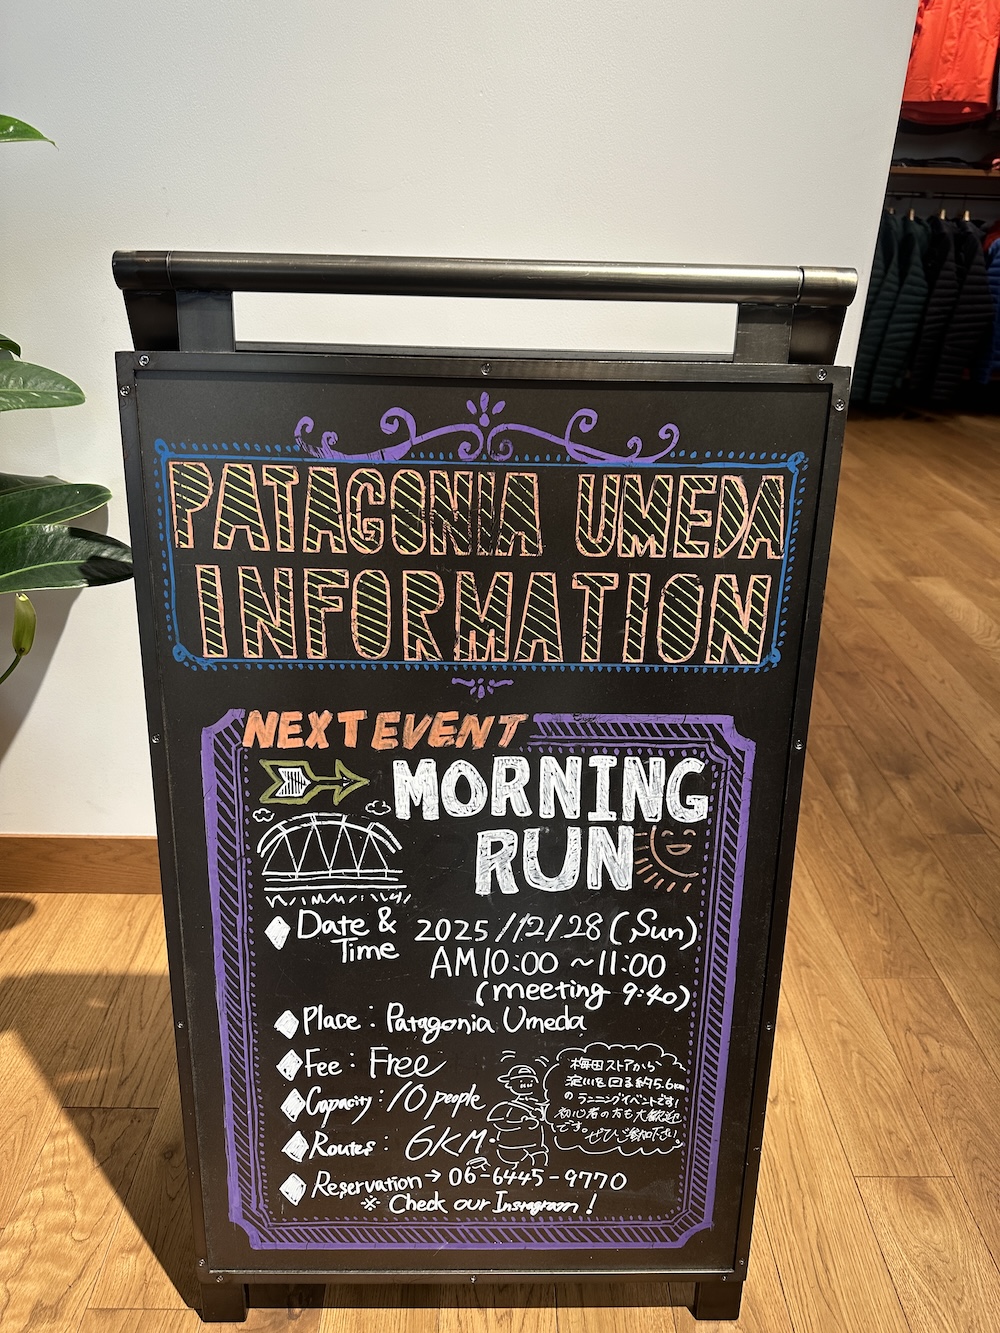 PATAGONIA UMEDA
INFORMATION
NEXT EVENT
MORNING
RUN
◆Date &
Time
2025/12/28 (Sun)
AM10:00 ~11:00
(meeting 9:40)
◆Place : Patagonia Umeda
◆Fee : Free
◆Capacity : 10 people
◆Routes : 6KM
梅田ストアから
淀川を回る約5.6km
のランニングイベントです!
初心者の方も大歓迎
です。ぜひご参加下さい
◆Reservation→06-6445-9770
※ Check our Instagram!